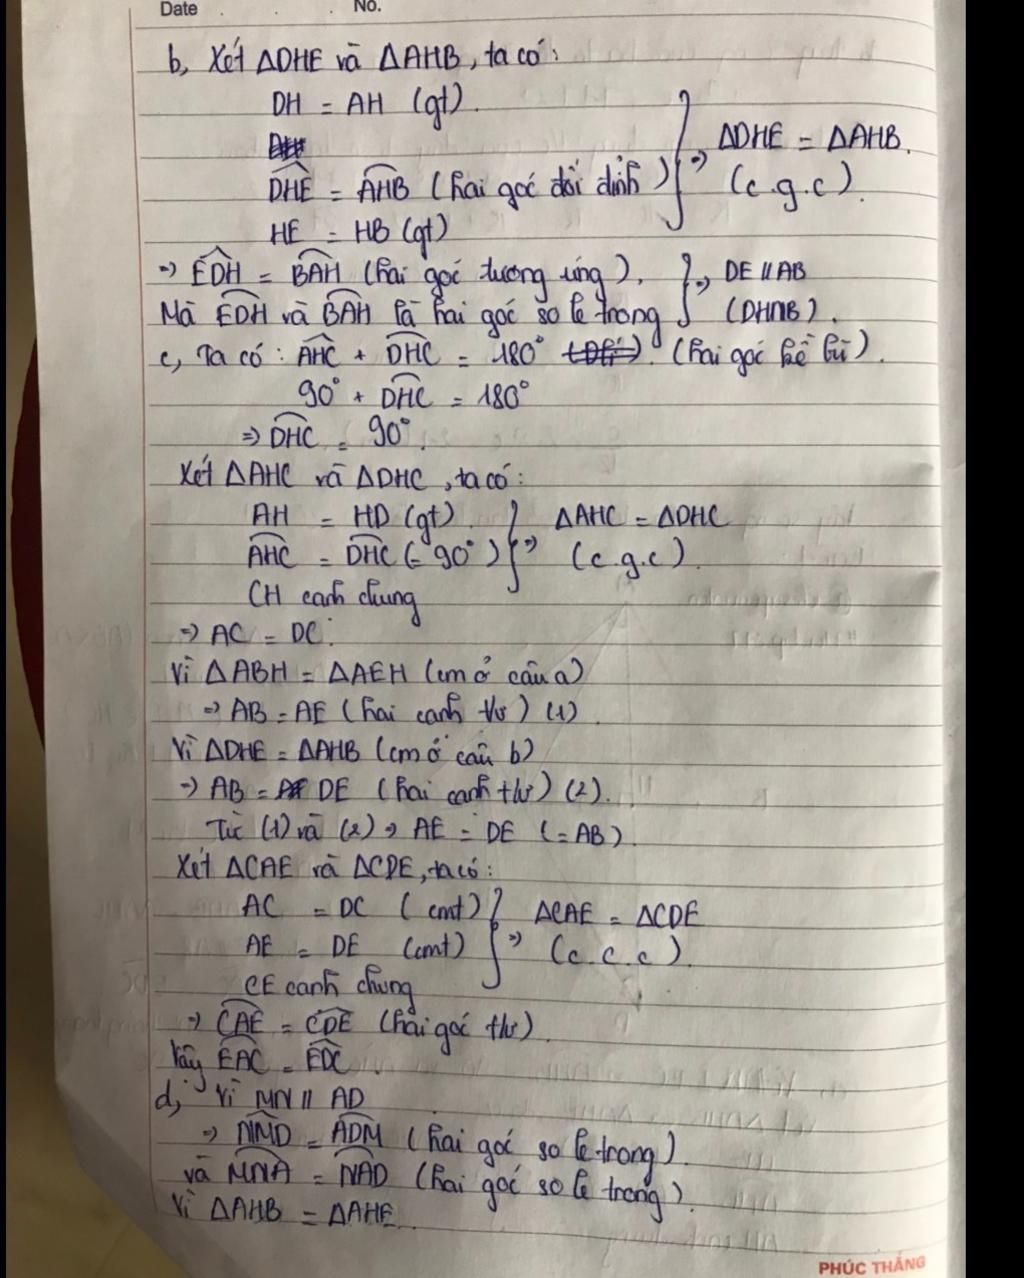 Date . . No.
b, Xét ΔDHE và ΔAHB, ta có:
DH = AH (gt).
DHE = AHB (hai góc đối đỉnh) } => ΔDHE = ΔAHB.
(c.g.c).
HE = HB (gt)
=> EDH = BAH (hai góc tương ứng). } => DE // AB
Mà EDH và BAH là hai góc so le trong (DHNB).
c, Ta có: AHC + DHC = 180° (hai góc kề bù).
90° + DHC = 180°
=> DHC = 90°.
Xét ΔAHC và ΔDHC, ta có:
AH = HD (gt) } ΔAHC = ΔDHC
AHC = DHC (= 90°) => (c.g.c).
CH cạnh chung
=> AC = DC.
Vì ΔABH = ΔAEH (cm ở câu a)
=> AB = AE (hai cạnh tư) (1)
Vì ΔDHE = ΔAHB (cm ở câu b)
=> AB = DE (hai cạnh tư) (2).
Từ (1) và (2) => AE = DE (= AB).
Xét ΔCAE và ΔCDE, ta có:
AC = DC (cmt) } ΔCAE = ΔCDE
AE = DE (cmt) => (c.c.c).
CE cạnh chung
=> CAE = CDE (hai góc tư).
Vậy EAC = EDC.
d, Vì MN // AD
=> NMD = ADM (hai góc so le trong).
và MNA = NAD (hai góc so le trong).
Vì ΔAHB = ΔAHE
PHÚC THẮNG